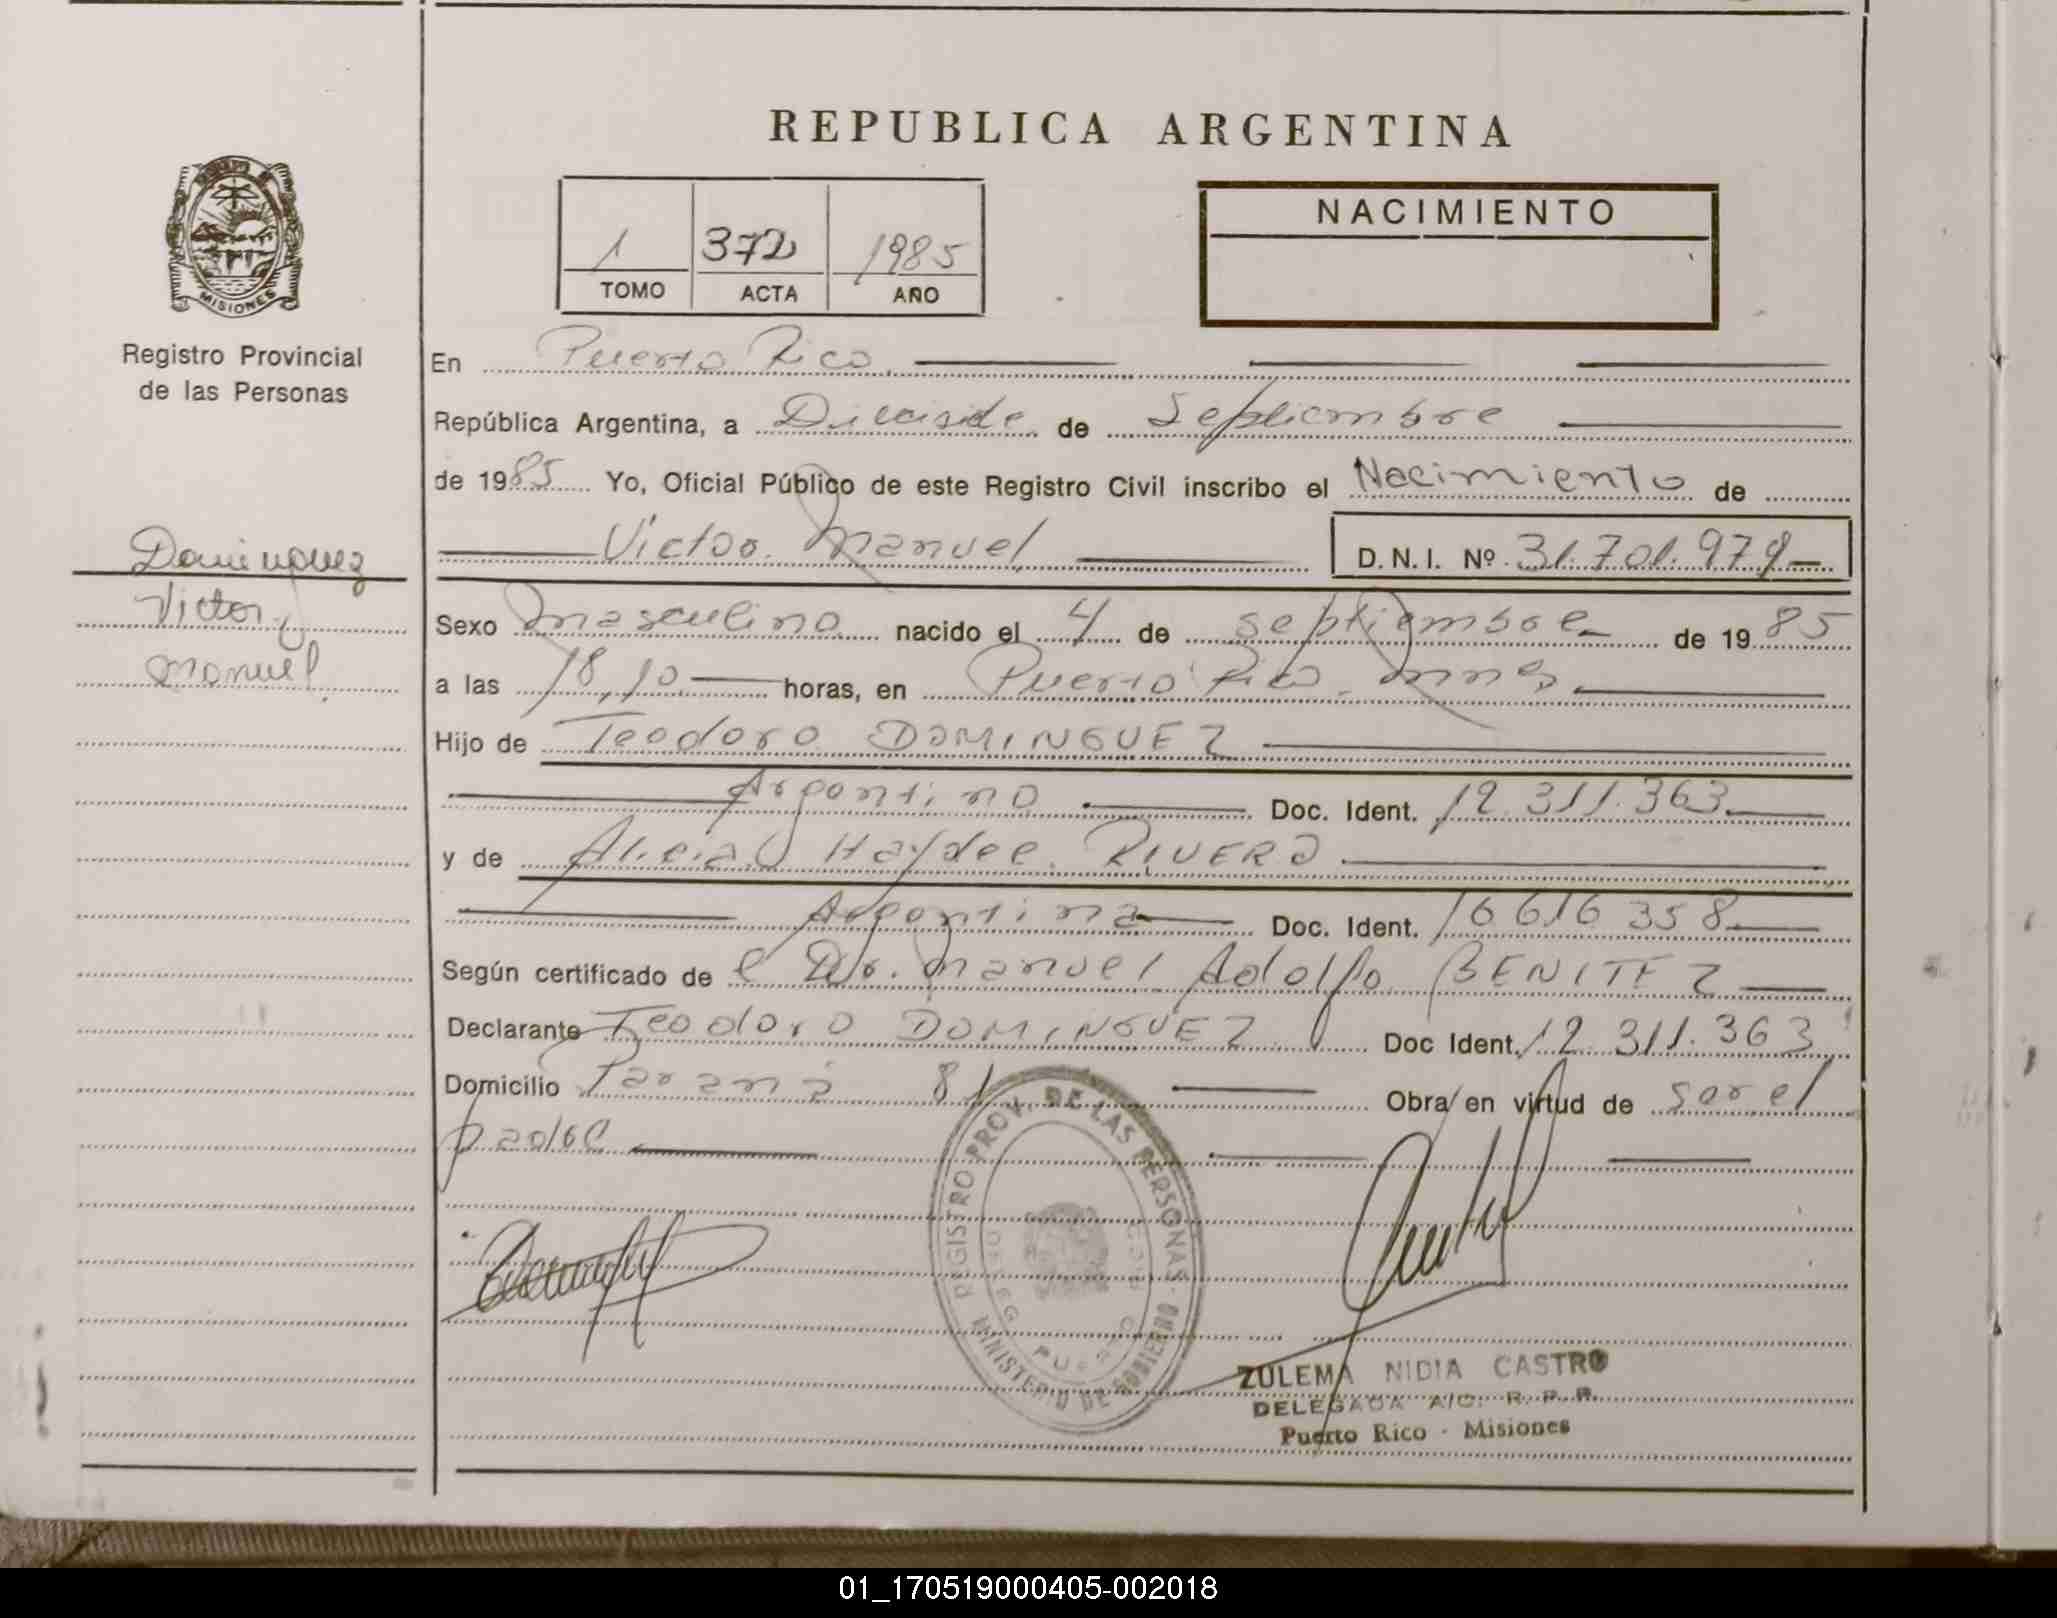 REPUBLICA ARGENTINA
MISIONES
Registro Provincial
de las Personas
1 372 1985
TOMO ACTA AÑO
NACIMIENTO
En Puerto Rico
República Argentina, a de Septiembre
de 1985 Yo, Oficial Público de este Registro Civil inscribo el Nacimiento de
Dominguez
Victor
Manuel
Victor Manuel D.N.I. Nº 31.701.979
Sexo masculino nacido el 4 de septiembre de 1985
a las 18,10 horas, en Puerto Rico. Mnes
Hijo de Teodoro DOMINGUEZ
Argentino Doc. Ident. 12.311.363
y de Alicia Haydee RIVERO
Argentina Doc. Ident. 16616358
Según certificado de el Dr. Manuel Adolfo BENITEZ
Declarante Teodoro DOMINGUEZ Doc Ident. 12.311.363
Domicilio Paraná 81 Obra en virtud de ser el
padre
REGISTRO PROV. DE LAS PERSONAS
MINISTERIO DE GOBIERNO
PUERTO
ZULEMA NIDIA CASTRO
DELEGADA A/C. R. P. P.
Puerto Rico - Misiones
01_170519000405-002018